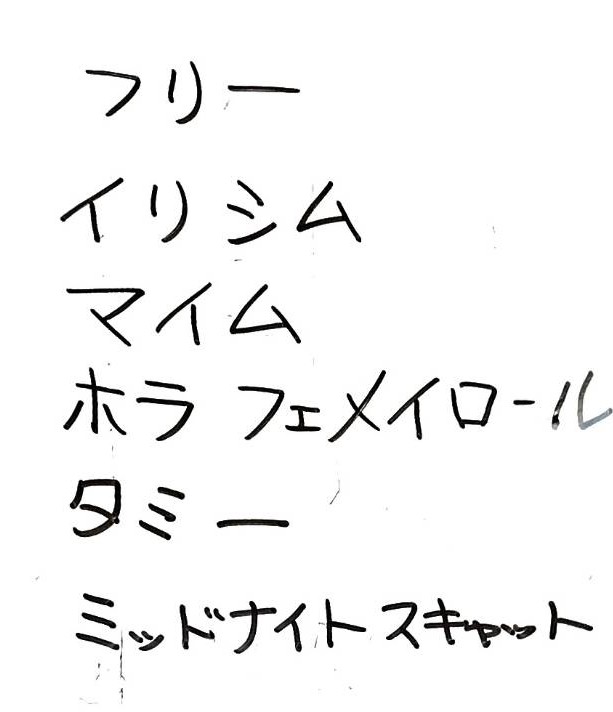 フリー
イリシム
マイム
ホラ フェメイロール
タミー
ミッドナイトスキャット